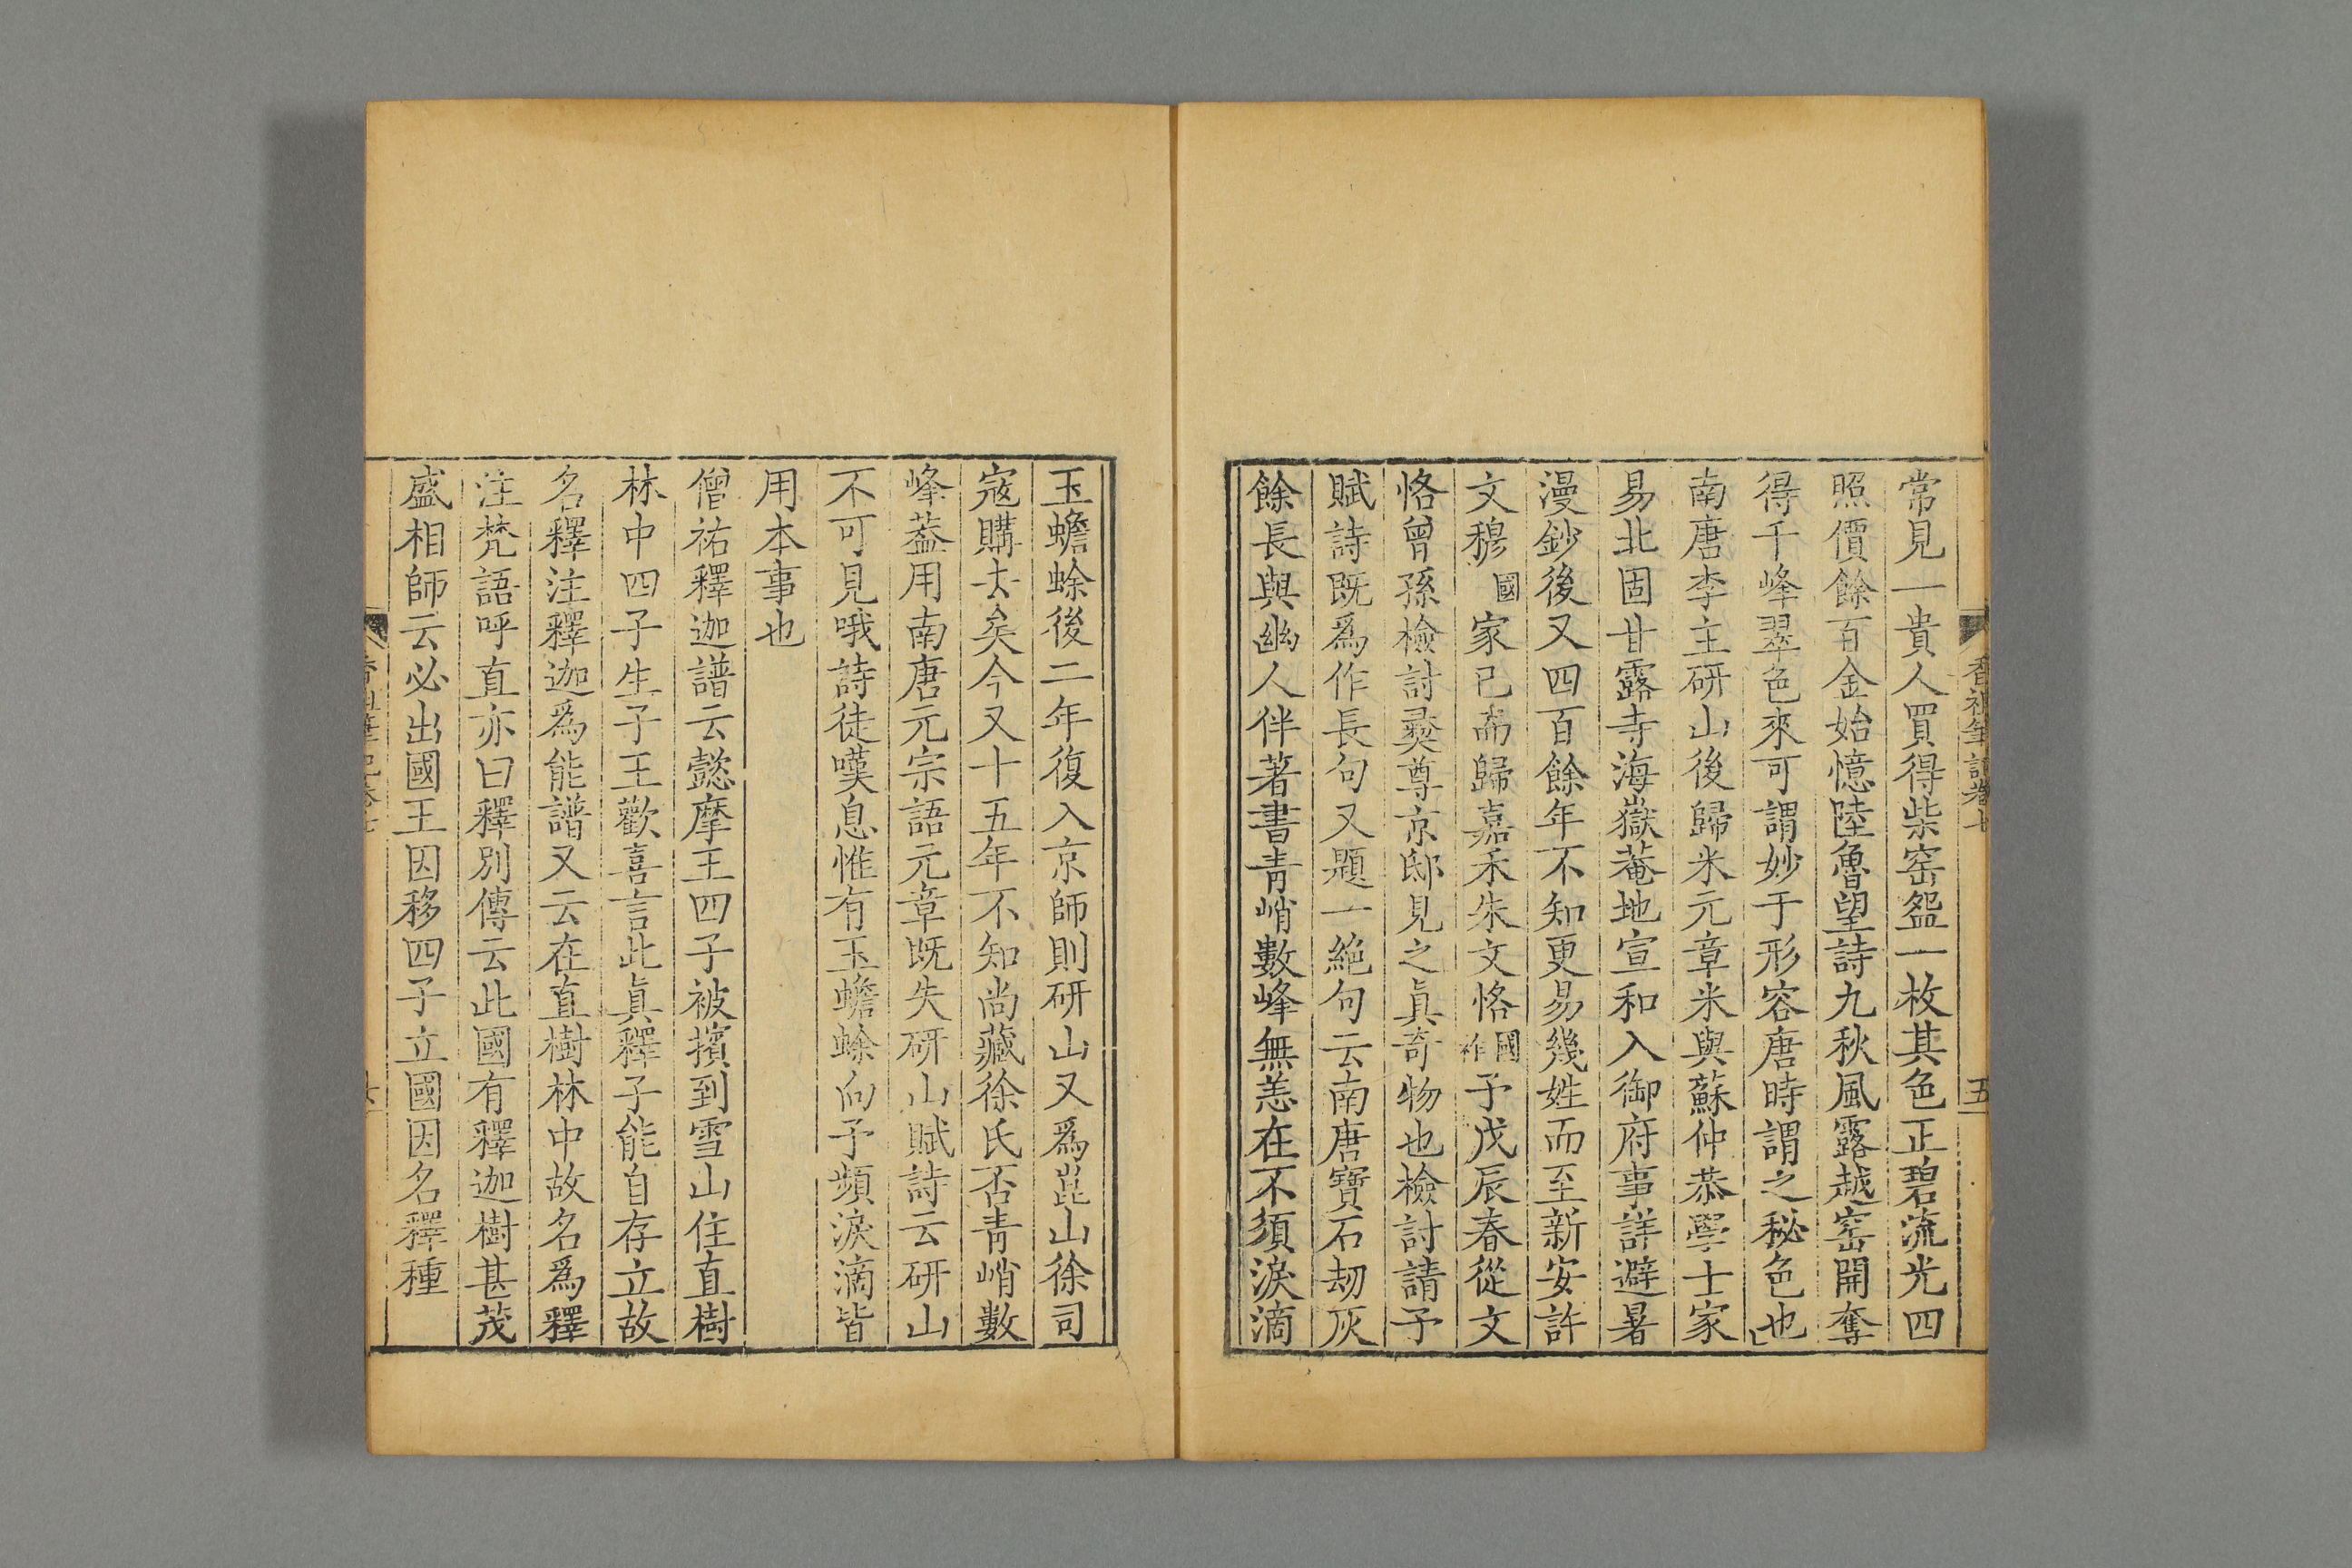 常見一貴人買得柴窑盌一枚其色正碧流光四
照價餘百金始憶陸魯望詩九秋風露越窑開奪
得千峰翠色來可謂妙于形容唐時謂之秘色也
南唐李主研山後歸米元章米與蘇仲恭學士家
易北固甘露寺海嶽菴地宣和入御府事詳避暑
漫鈔後又四百餘年不知更易幾姓而至新安許
文穆國家已而歸嘉禾朱文恪國祚予戊辰春從文
恪曾孫檢討彞尊京邸見之眞奇物也檢討請予
賦詩既爲作長句又題一絕句云南唐寶石刼灰
餘長與幽人伴著書青峭數峰無恙在不須淚滴
香祖筆記卷
五
玉蟾蜍後二年復入京師則研山又爲崑山徐司
寇購去矣今又十五年不知尚藏徐氏否青峭數
峰葢用南唐元宗語元章既失研山賦詩云研山
不可見哦詩徒嘆息惟有玉蟾蜍向予頻淚滴皆
用本事也
僧祐釋迦譜云懿摩王四子被擯到雪山住直樹
林中四子生子王歡喜言此眞釋子能自存立故
名釋注釋迦爲能譜又云在直樹林中故名爲釋
注梵語呼直亦曰釋別傳云此國有釋迦樹甚茂
盛相師云必出國王因移四子立國因名釋種